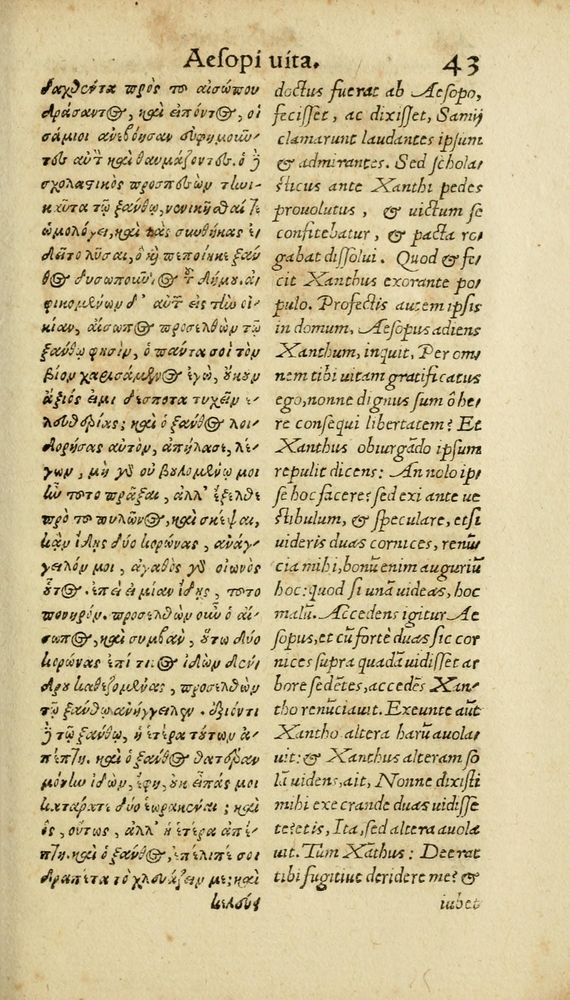 Aesopi uita. 43
δαχθέντα πρὸς τοῦ αἰσώπου
δράσαντος, καὶ εἰπόντος, οἱ
σάμιοι ἀνεβόησαν εὐφημοῦν/
τες αὐτὸν καὶ θαυμάζοντες. ὁ δὲ
σχολαστικὸς προσπεσὼν τηνι-
καῦτα τῷ ξάνθῳ, νενικῆσθαί τε
ὡμολόγει, καὶ τὰς συνθήκας ἐ/
δεῖτο λῦσαι, ὃ καὶ πεποίηκε ξάν
θος δυσωποῦντος τοῦ δήμου. ἀ/
φικομένων δ' αὐτῶν εἰς τὴν οἰ/
κίαν, αἴσωπος προσελθὼν τῷ
ξάνθῳ φησὶν, ὁ πάντα σοι τὸν
βίον χαρισάμενος ἐγὼ, οὔκουν
ἄξιός εἰμι δέσποτα τυχεῖν ἐ/
λευθερίας; καὶ ὁ ξάνθος λοι/
δορήσας αὐτὸν, ἀπήλασε, λέ/
γων, μὴ γὰρ οὐ βουλομένῳ μοι
ἦν τοῦτο πρᾶξαι, ἀλλ' ἔξελθε
πρὸ τοῦ πυλῶνος, καὶ σκέψαι,
κἂν ἴδῃς δύο κορώνας, ἀνάγ/
γειλόν μοι, ἀγαθὸς γὰρ οἰωνὸς
οὗτος. ἐπεὶ εἰ μίαν ἴδῃς, τοῦτο
πονηρόν. προσελθὼν οὖν ὁ αἴ/
σωπος, καὶ συμβὰν, οὕτω δύο
κορώνας ἐπί τινος ἰδὼν δέν/
δρου καθεζομένας, προσελθὼν
τῷ ξάνθῳ ἀνήγγειλεν. ἐξιόντι
δὲ τῷ ξάνθῳ, ἡ ἑτέρα τούτων ἀ/
πέπτη. καὶ ὁ ξάνθος θατέραν
μόνην ἰδὼν, ἔφη, οὐκ εἶπάς μοι
κατάρατε δύο ἑωρακέναι; καὶ
ὃς, οὕτως, ἀλλ' ἡ ἑτέρα ἀπέ/
πτη. καὶ ὁ ξάνθος, ἐπέλιπέ σοι
δραπέτα τὸ χλευάζειν με; καὶ
κελεύει
doctus fuerat ab Aesopo,
fecisset, ac dixisset, Samij
clamarunt laudantes ipsum
& admirantes. Sed schola/
sticus ante Xanthi pedes
prouolutus, & uictum se
confitebatur, & pacta ro/
gabat dissolui. Quod & fe/
cit Xanthus exorante po/
pulo. Profectis autem ipsis
in domum, Aesopus adiens
Xanthum, inquit, Per om/
nem tibi uitam gratificatus
ego, nonne dignus sum ô he/
re consequi libertatem? Et
Xanthus obiurgãdo ipsum
repulit dicens: An nolo ip/
se hoc facere? sed exi ante ue
stibulum, & speculare, etsi
uideris duas cornices, renũ/
cia mihi, bonũ enim auguriũ
hoc: quod si unã uideas, hoc
malũ. Accedens igitur Ae
sopus, et cũ fortè duas sic cor
nices supra quadã uidisset ar
bore sedẽtes, accedẽs Xan/
tho renũciauit. Exeunte aũt
Xantho altera harũ auola/
uit: & Xanthus alteram so
lã uidens, ait, Nonne dixisti
mihi execrande duas uidisse
te? et is, Ita, sed altera auola
uit. Tũm Xãthus: Deerat
tibi fugitiue deridere me? &
iubet